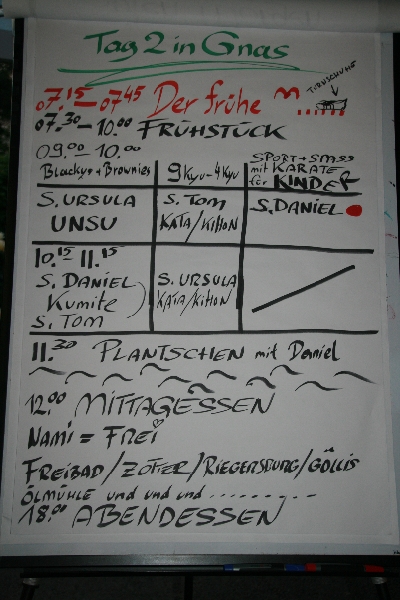 Tag 2 in Gnas
TURNSCHUHE
07.15 – 07.45 Der frühe
07.30 – 10.00 FRÜHSTÜCK
09.00 – 10.00
Blackys + Brownies
9 Kyu – 4 Kyu
SPORT + SPASS
mit KARATE
für KINDER
S. URSULA
UNSU
S. TOM
KATA/KIHON
S. DANIEL
10.15 – 11.15
S. DANIEL
Kumite
S. TOM
S. URSULA
KATA/KIHON
11.30 PLANTSCHEN mit Daniel
12.00 MITTAGESSEN
NAMI = FREi
FREIBAD/ZOTTER/RIEGERSBURG/GÖLLIS
ÖLMÜHLE und und und ..........
18.00 ABENDESSEN